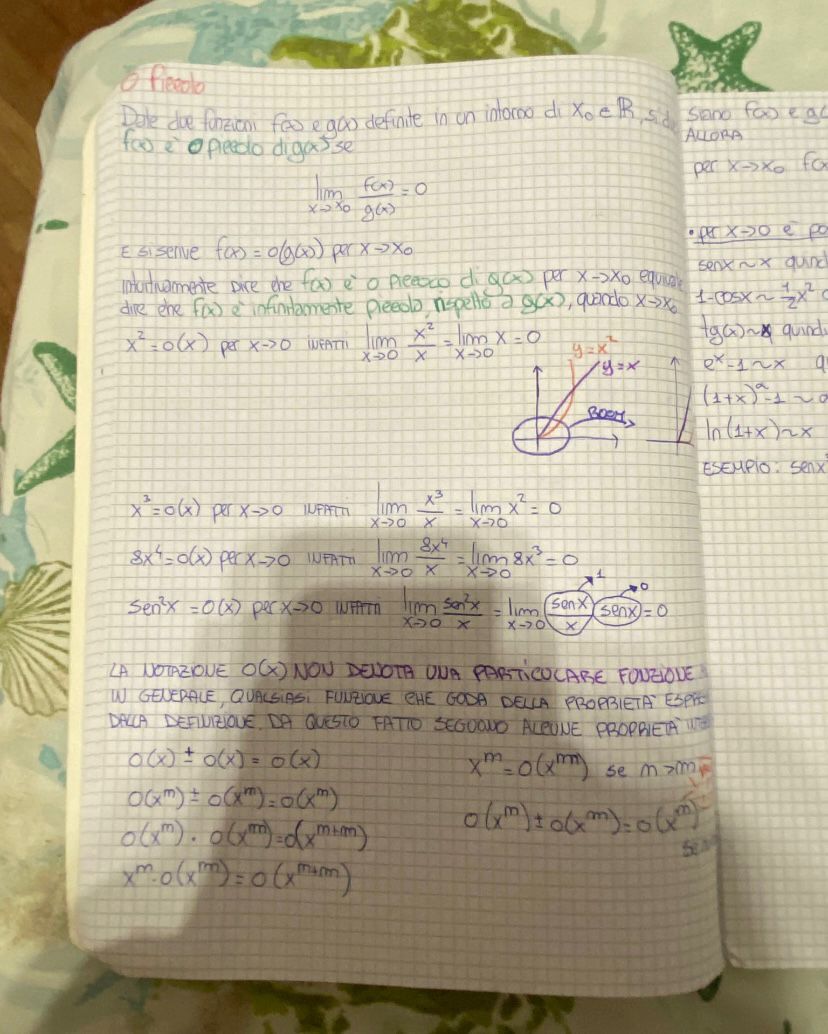 O Piccolo
Date due funzioni f(x) e g(x) definite in un intorno di x₀ ∈ ℝ, si dice
f(x) è o piccolo di g(x) se
lim x→x₀ f(x)/g(x) = 0
E si scrive f(x) = o(g(x)) per x→x₀
Intuitivamente dire che f(x) è o piccolo di g(x) per x→x₀ equivale
dire che f(x) è infinitamente piccolo, rispetto a g(x), quando x→x₀
x² = o(x) per x→0 INFATTI lim x→0 x²/x = lim x→0 x = 0
y=x²
y=x
BOOM
x³ = o(x) per x→0 INFATTI lim x→0 x³/x = lim x→0 x² = 0
8x⁴ = o(x) per x→0 INFATTI lim x→0 8x⁴/x = lim x→0 8x³ = 0
sen²x = o(x) per x→0 INFATTI lim x→0 sen²x/x = lim x→0 (senx/x) (senx) = 0
1
0
LA NOTAZIONE O(x) NON DENOTA UNA PARTICOLARE FUNZIONE
IN GENERALE, QUALSIASI FUNZIONE CHE GODA DELLA PROPRIETÀ ESPRE
DALLA DEFINIZIONE. DA QUESTO FATTO SEGUONO ALCUNE PROPRIETÀ
o(x) ± o(x) = o(x)
o(xᵐ) ± o(xᵐ) = o(xᵐ)
o(xᵐ) · o(xᵐ) = o(xᵐ⁺ᵐ)
xᵐ · o(xᵐ) = o(xᵐ⁺ᵐ)
o(xᵐ) ± o(xᵐ) = o(xᵐ)
siano f(x) e g(
ALLORA
per x→x₀ f(x
• per x→0 è po
senx ~ x quind
1-cosx ~ ½x²
tg(x) ~ x quindi
eˣ-1 ~ x
(1+x)ᵅ-1 ~
ln(1+x) ~ x
ESEMPIO: senx